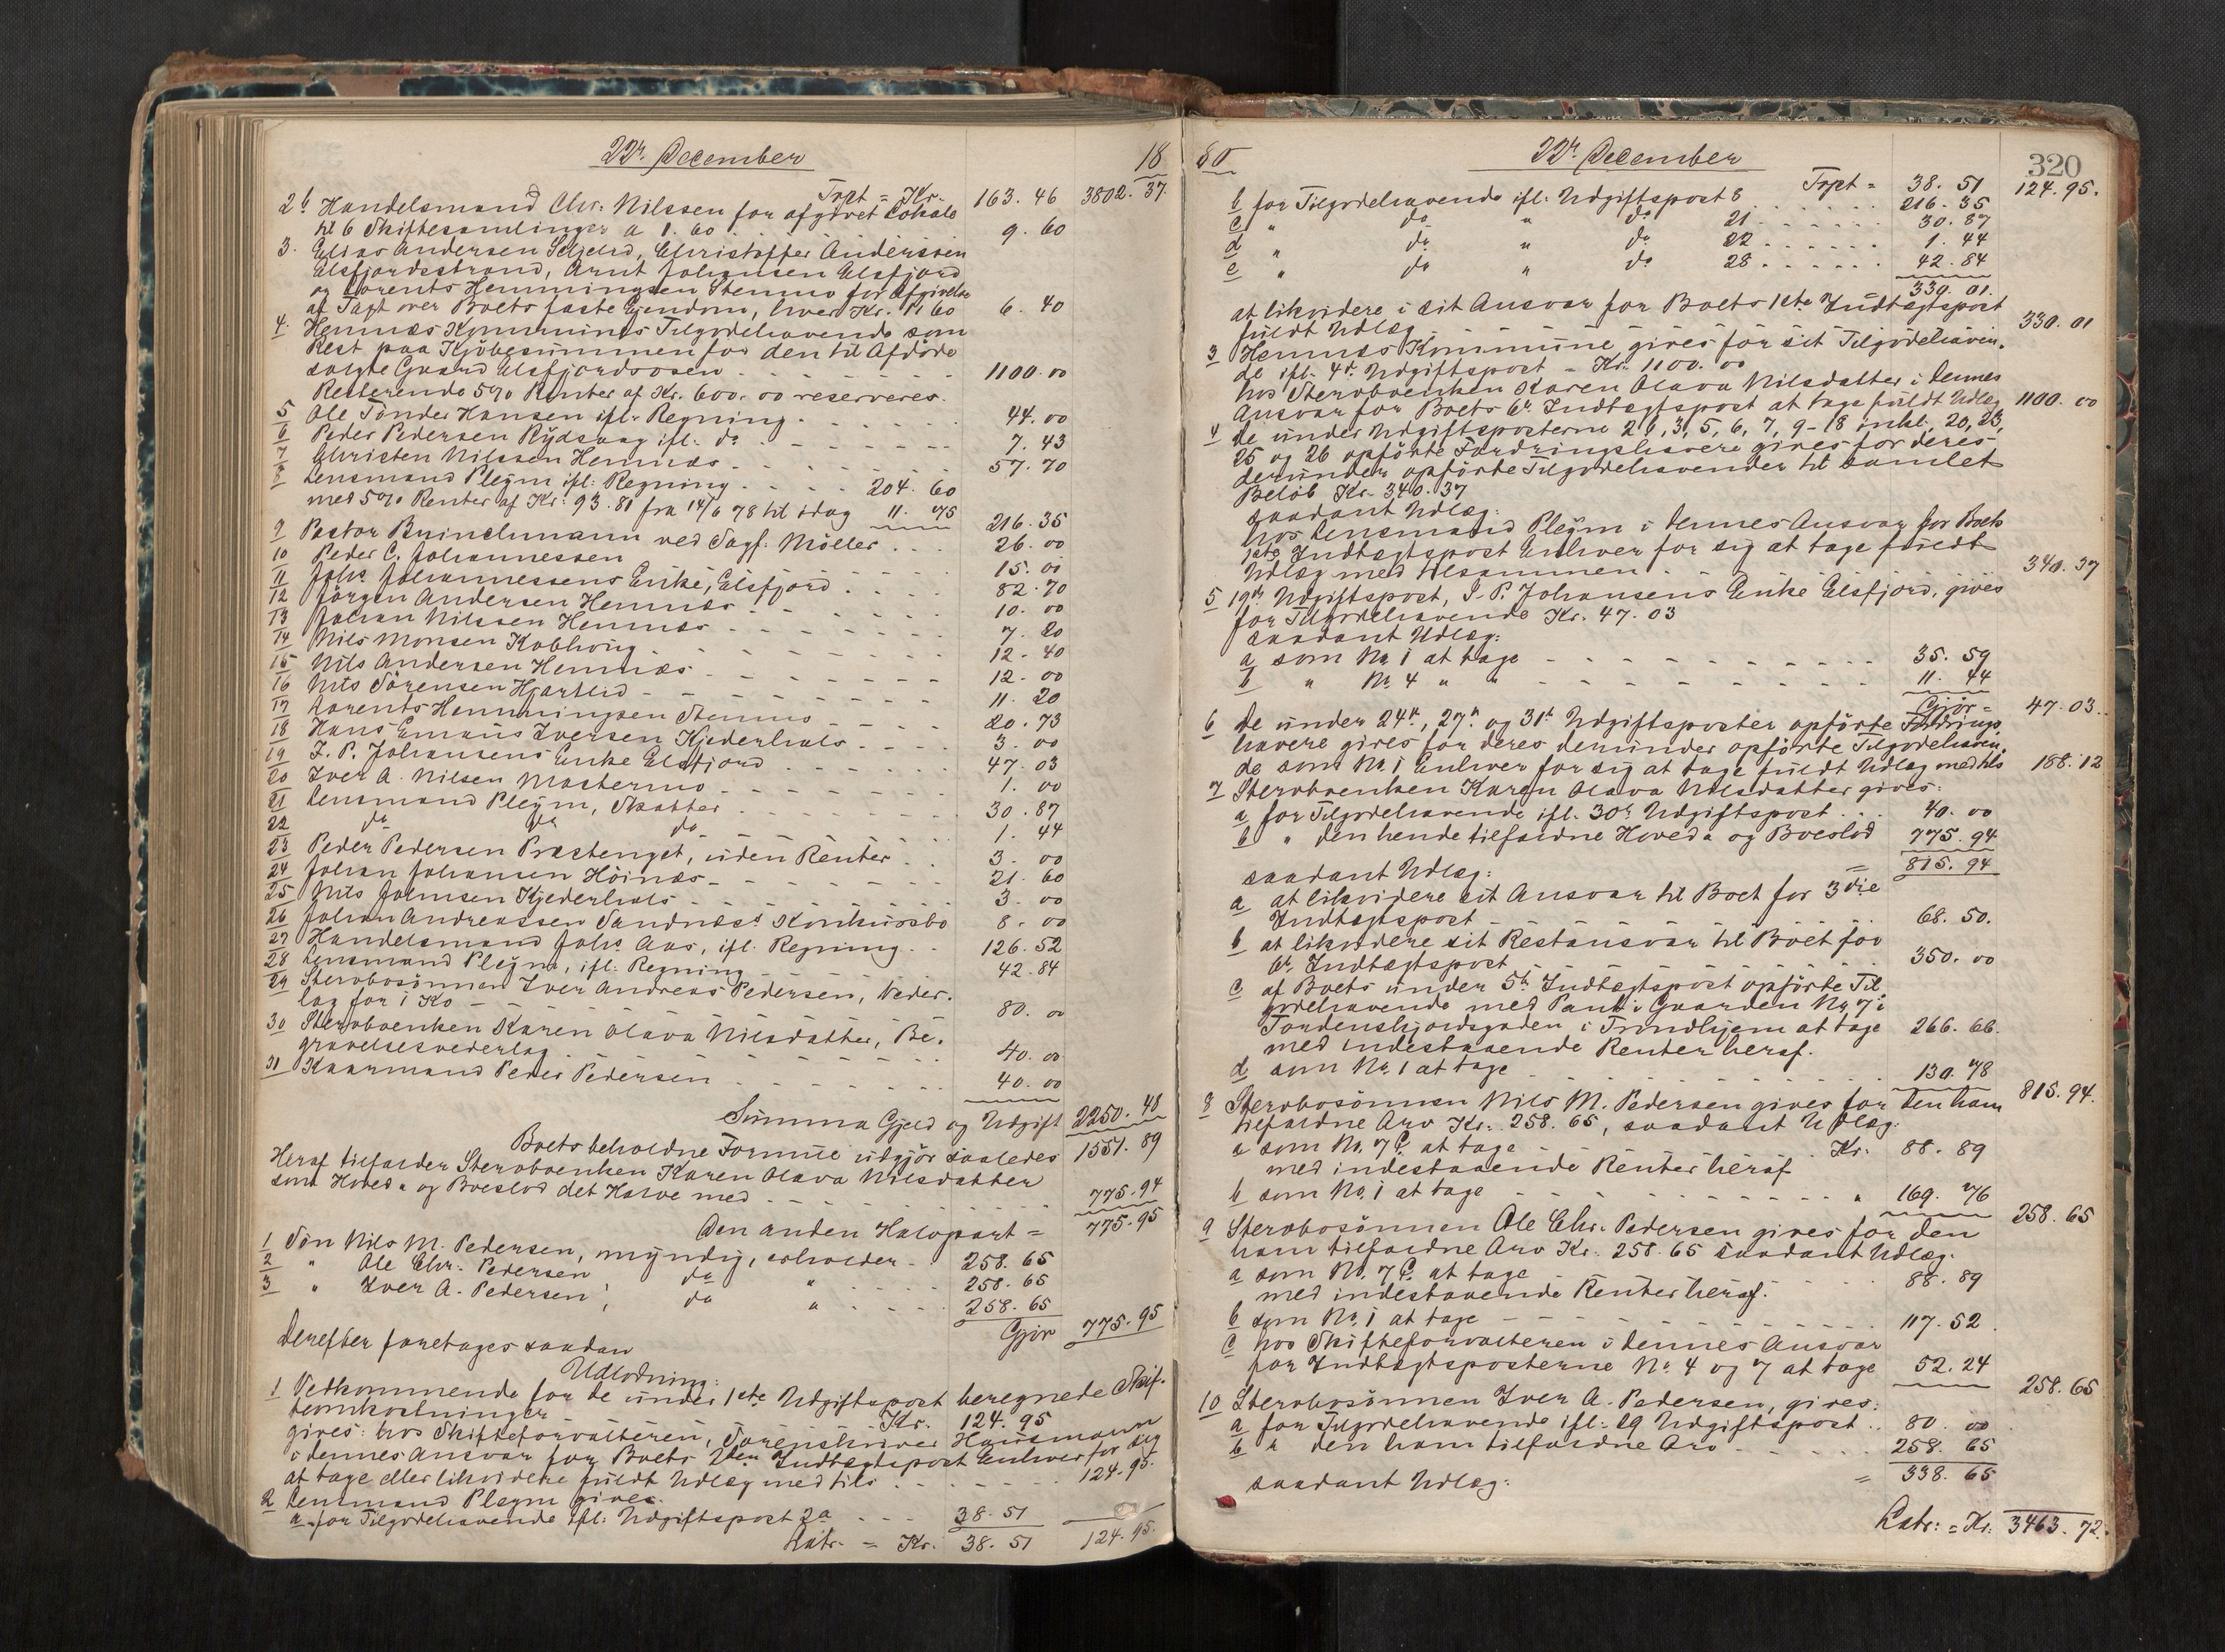 22de December
18
Trpt = Kr. 163. 46 3802. 37.
2b Handelsmand Chr. Nilssen for afgivet Lokale
til 6 Skiftesamlinger a 1. 60 . . . 9. 60
3. Elias Andersen Seljelid, Christoffer Anderssen
Elsfjordsstrand, Arnt Johansen Elsfjord
og Lorents Hemmingsen Stenmo for Afgivelse
af Taxt over Boets faste Ejendom, hver Kr. 1. 60 6. 40
4. Hemnæs Kommunes Tilgodehavende som
Rest paa Kjöbesummen for den til Afdöde
solgte Gaard Elsfjordsosen - - - - 1100. 00
Resterende 5% Renter af Kr. 600. 00 reserveres.
5 Ole Tönder Hansen ifl. Regning . . . . 44. 00
6 Peder Pedersen Rydsaag ifl. do . . . . 7. 43
7 Christen Nilssen Hemnæs . . . . 57. 70
8 Lensmand Pleym ifl. Regning . . . . 204. 60
med 5% Renter af Kr. 93. 81 fra 14/6 78 til idag 11. 75
216. 35
9 Pastor Buinchmann ved Sagf. Möller . . . 26. 00
10 Peder C. Johannessen . . . . 15. 00
11 Johs Johannessens Enke, Elsfjord . . . . 82. 70
12 Jörgen Andersen Hemnæs . . . . 10. 00
13 Johan Nilssen Hemnæs - - - - 7. 20
14 Nils Monsen Kobhoug . . . . 12. 40
15 Nils Andersen Hemnæs . . . . 12. 00
16 Nils Sörensen Hjartlid - - - - 11. 20
17 Lorents Hemmingsen Stenmo . . . . 20. 73
18 Hans Emaus Iversen Kjederhals . . . . 3. 00
19 I. P. Johansens Enke Elsfjord . . . . 47. 03
20 Iver A. Nilsen Mastermo . . . . 1. 00
21 Lensmand Pleym, Skatter . . . . 30. 87
22 do do do . . . . 1. 44
23 Peder Pedersen Præstenget, uden Renter . . 3. 00
24 Johan Johansen Höinæs - - - - 21. 60
25 Nils Johnsen Kjederhals . . . . 3. 00
26 Johan Andreassen Sandnæss Konkursbo 8. 00
27 Handelsmand Johs Aas, ifl. Regning . . 126. 52
28 Lensmand Pleym, ifl. Regning . . . . 42. 84
29 Stervbosönnen Iver Andreas Pedersen, Veder-
lag for 1 Ko - - - - 80. 00
30 Stervboenken Karen Olava Nilsdatter, Be-
gravelsesvederlag . . . . 40. 00
31 Kaarmand Peder Pedersen . . . . 40. 00
Summa Gjeld og Udgift 2250. 48
Boets beholdne Formue udgjör saaledes 1551. 89
Heraf tilfalder Stervboenken Karen Olava Nilsdatter
som Hoved- og Boeslod det Halve med . . . . 775. 94
Den anden Halvpart = 775. 95
1 Sön Nils M. Pedersen, myndig, erholder . 258. 65
2 " Ole Chr. Pedersen do " . . . 258. 65
3 " Iver A. Pedersen, do " . . . 258. 65
Gjör 775. 95
Derefter foretages saadan
Udlodning:
1 Vedkommende for de under 1ste Udgiftspost beregnede Skif-
teomkostninger Kr. 124. 95
gives: hos Skifteforvalteren, Sorenskriver Hausmann
i dennes Ansvar for Boets 2den Indtægtspost Enhver for sig
at tage eller likvidere fuldt Udlæg med tils . . . . 124. 95.
2 Lensmand Pleym gives:
a for Tilgodehavende ifl. Udgiftspost 2a . . . 38. 51
Latr. = Kr. 38. 51 124. 95.
80
22de December
320
Trpt = 38. 51 124. 95.
b for Tilgodehavende ifl. Udgiftspost 8 . . . . 216. 35
c " do " do 21 . . . . 30. 87
d " do " do 22 . . . . 1. 44
e " do " do 28 . . . . 42. 84
= 330. 01.
at likvidere i sit Ansvar for Boets 1ste Indtægtspost
fuldt Udlæg . . . . 330. 01
3 Hemnæs Kommune gives for sit Tilgodehaven-
de ifl. 4de Udgiftspost - Kr. 1100. 00
hos Stervboenken Karen Olava Nilsdatter i dennes
Ansvar for Boets 6te Indtægtspost at tage fuldt Udlæg 1100. 00
4 De under Udgiftsposterne 2b, 3, 5, 6, 7, 9-18 inkl., 20, 23,
25 og 26 opförte Fordringshavere gives for deres
derunder opförte Tilgodehavender til samlet
Belöb Kr. 340. 37
saadant Udlæg:
hos Lensmand Pleym i dennes Ansvar for Boets
1ste Indtægtspost Enhver for sig at tage fuldt
Udlæg med tilsammen . . . . 340. 37
5 19de Udgiftspost, I. P. Johansens Enke Elsfjord, gives
for Tilgodehavende Kr. 47. 03
saadant Udlæg:
a som No 1 at tage - - - - 35. 59
b " No 4 " " - - - - 11. 44
Gjör = 47. 03.
6 De under 24de, 27de og 31te Udgiftsposter opförte Fordrings-
havere gives for deres derunder opförte Tilgodehaven-
de som No 1 Enhver for sig at tage fuldt Udlæg med tils 188. 12
7 Stervboenken Karen Olava Nilsdatter gives:
a for Tilgodehavende ifl. 30te Udgiftspost . . . 40. 00
b " den hende tilfaldne Hoved- og Boeslod 775. 94
= 815. 94
saadant Udlæg:
a at likvidere sit Ansvar til Boet for 3die
Indtægtspost - - - - 68. 50.
b at likvidere sit Restansvar til Boet for
6te Indtægtspost . . . . 350. 00
c af Boets under 5te Indtægtspost opförte Til-
godehavende med Pant i Gaarden No 7 i
Tordenskjoldsgaden i Trondhjem at tage 266. 66.
med indestaaende Renter heraf.
d som No 1 at tage . . . . 130. 78
815. 94.
8 Stervbosönnen Nils M. Pedersen gives for den ham
tilfaldne Arv Kr. 258. 65, saadant Udlæg:
a som No 7 c. at tage . . Kr. 88. 89
med indestaaende Renter heraf
b som No 1 at tage - - - - " 169. 76
258. 65
9 Stervbosönnen Ole Chr. Pedersen gives for den
ham tilfaldne Arv Kr. 258. 65 saadant Udlæg:
a som No 7 c. at tage . . . . 88. 89
med indestaaende Renter heraf.
b som No 1 at tage - - - - 117. 52
c hos Skifteforvalteren i dennes Ansvar
for Indtægtsposterne No 4 og 7 at tage 52. 24
258. 65
10 Stervbosönnen Iver A. Pedersen, gives:
a for Tilgodehavende ifl. 29 Udgiftspost . . 80. 00
b " den ham tilfaldne Arv . . . . 258. 65
= 338. 65
saadant Udlæg:
Latr: = Kr: 3463. 72.